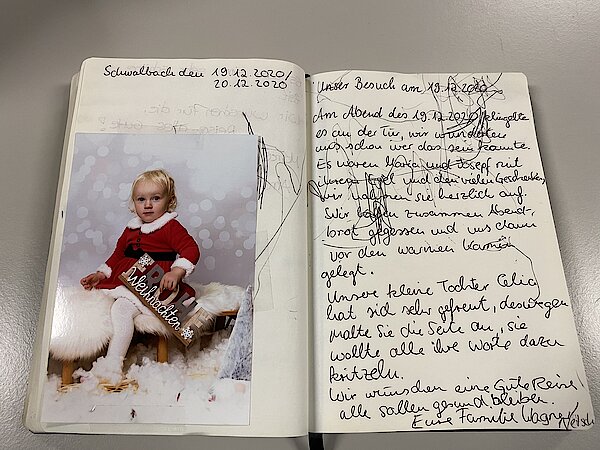 Schwalbach den 19.12.2020/
20.12.2020
FROHE
Weihnachten
Unser Besuch am 19.12.2020
Am Abend des 19.12.2020 klingelte
es an der Tür, wir wunderten
uns schon wer das sein könnte.
Es waren Maria und Josef mit
ihrem Esel und den vielen Geschenken,
wir nahmen sie herzlich auf.
Wir haben zusammen Abend-
brot gegessen und uns dann
vor den warmen Kamin
gelegt.
Unsere kleine Tochter Celia
hat sich sehr gefreut, deswegen
malte Sie die Seite an, sie
wollte alle ihre Worte dazu
kritzeln.
Wir wünschen eine Gute Reise!
alle sollen gesund bleiben.
Eure Familie Wagner/